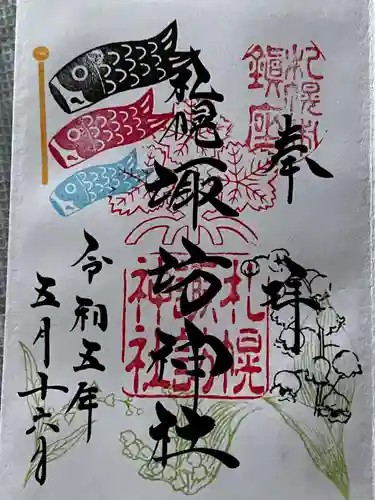 奉拝
札幌諏訪神社
令和五年
五月十六日
札幌村
鎮座
札幌
諏訪
神社